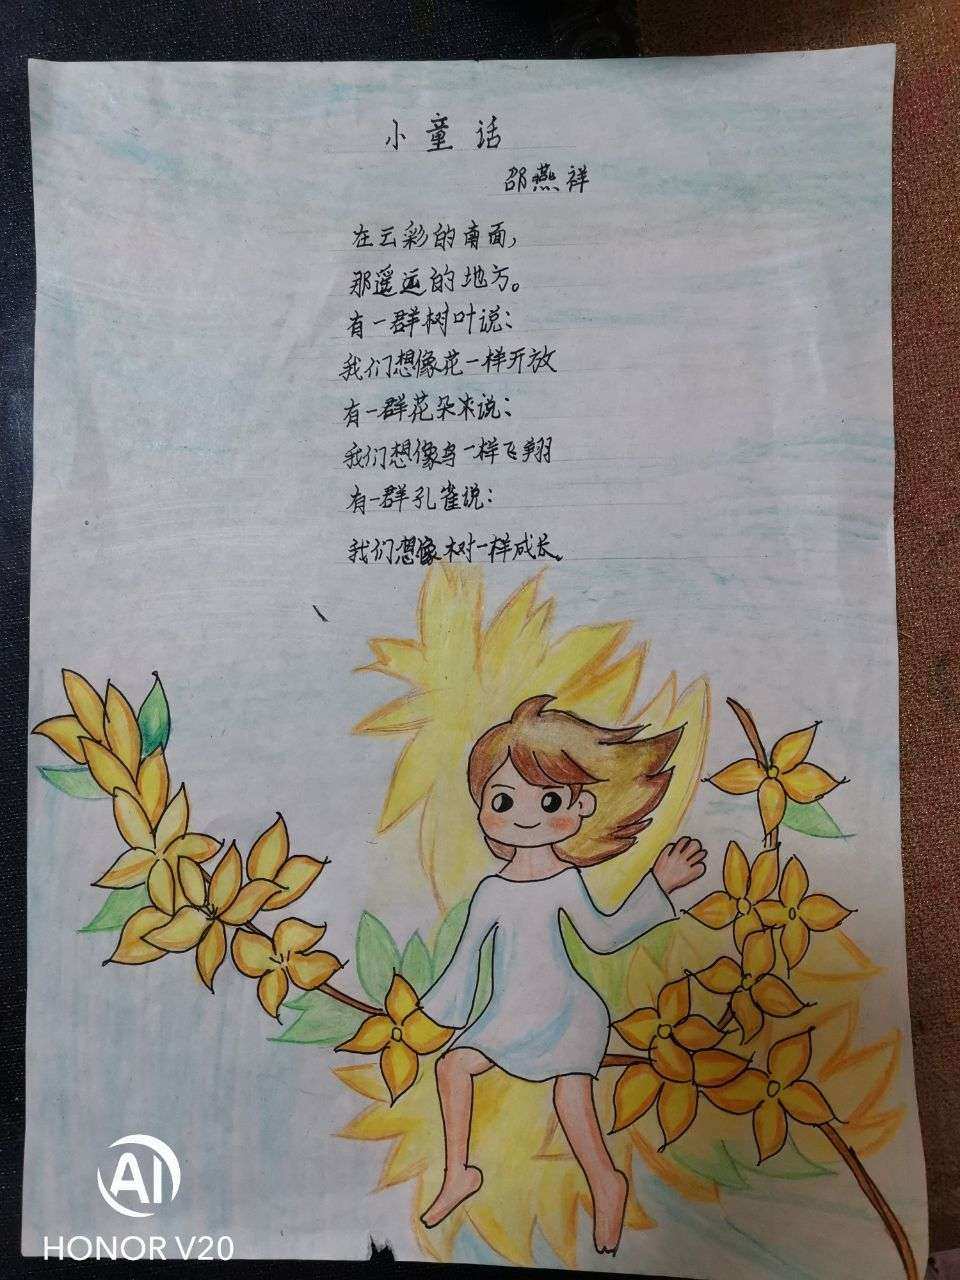 小童话
邵燕祥
在云彩的南面，
那遥远的地方。
有一群树叶说：
我们想像花一样开放
有一群花朵米说：
我们想像鸟一样飞翔
有一群孔雀说：
我们想像树一样成长。
AI
HONOR V20